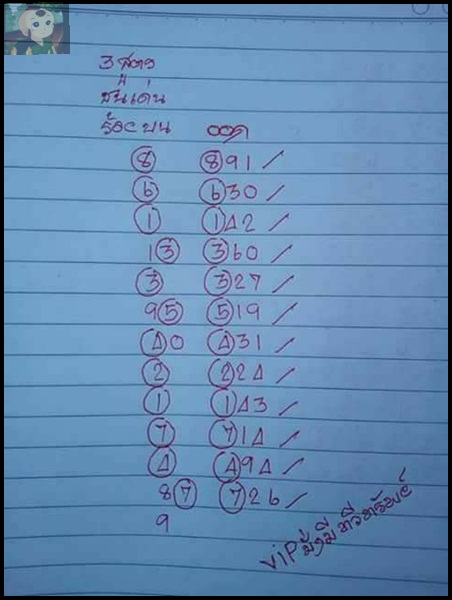 3 สูตร
ชั้นเด่น
ร้อย บน ออก
8 891 /
6 630 /
1 142 /
13 360 /
3 327 /
95 519 /
40 431 /
2 224 /
1 143 /
7 714 /
4 494 /
87 726 /
9
VIP มั่งมี ทวีทรัพย์